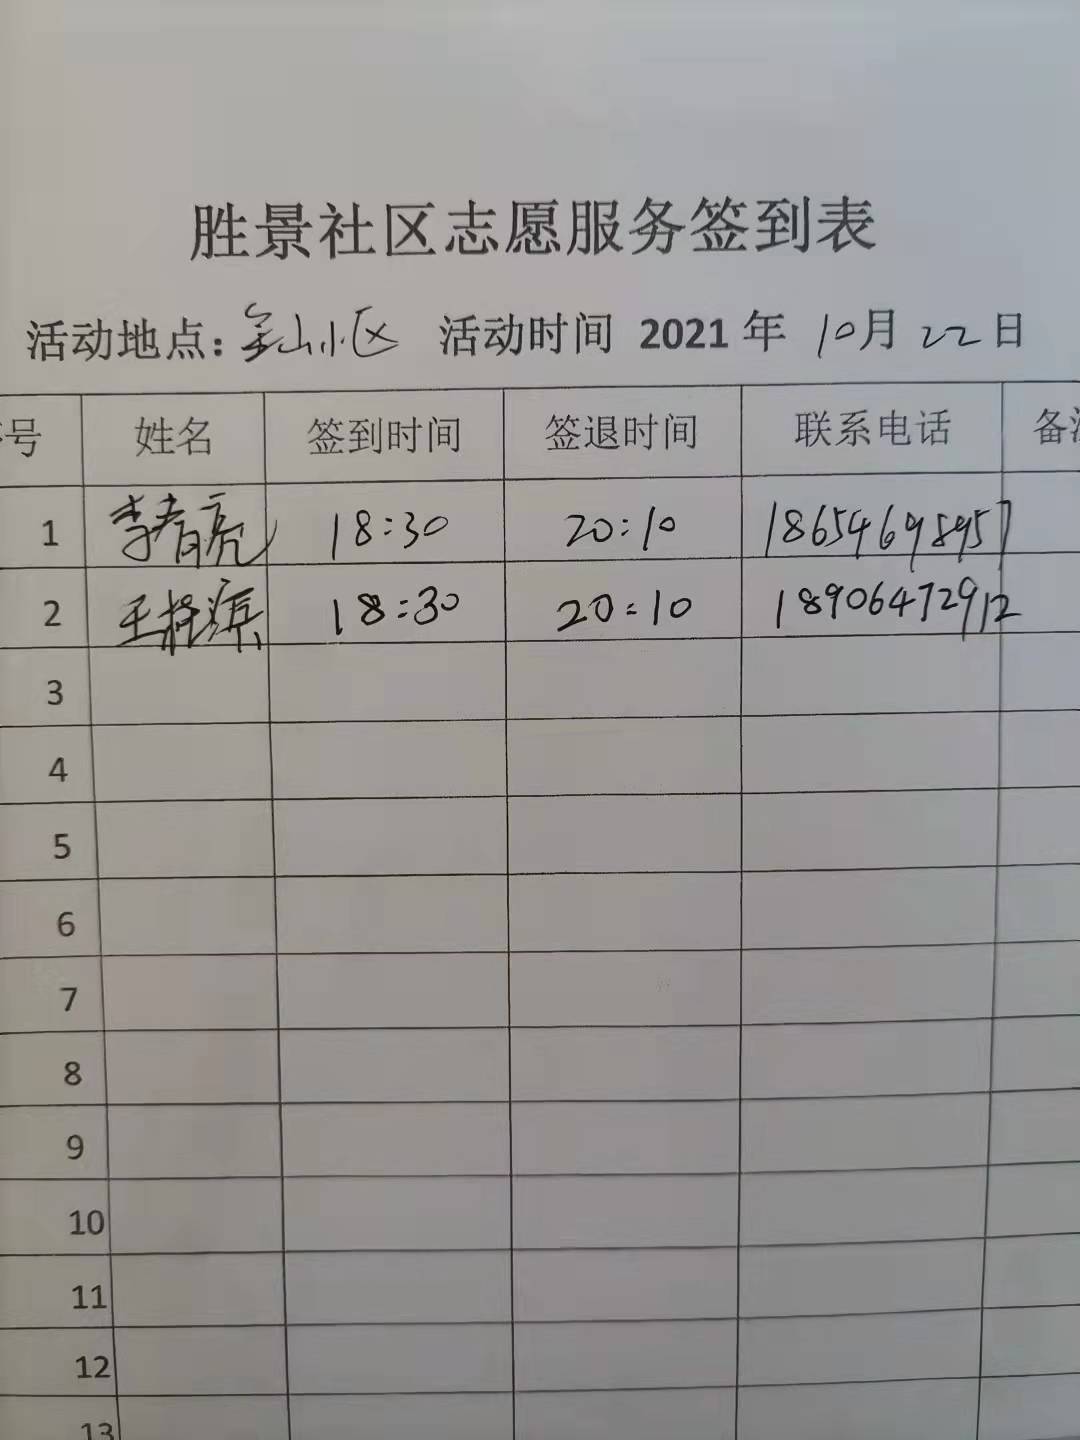 胜景社区志愿服务签到表
活动地点：金山小区 活动时间 2021 年 10月 22 日
号 姓名 签到时间 签退时间 联系电话 备注
1 李春亮 18:30 20:10 18654698957
2 王 18:30 20:10 18906472912
3
4
5
6
7
8
9
10
11
12
13